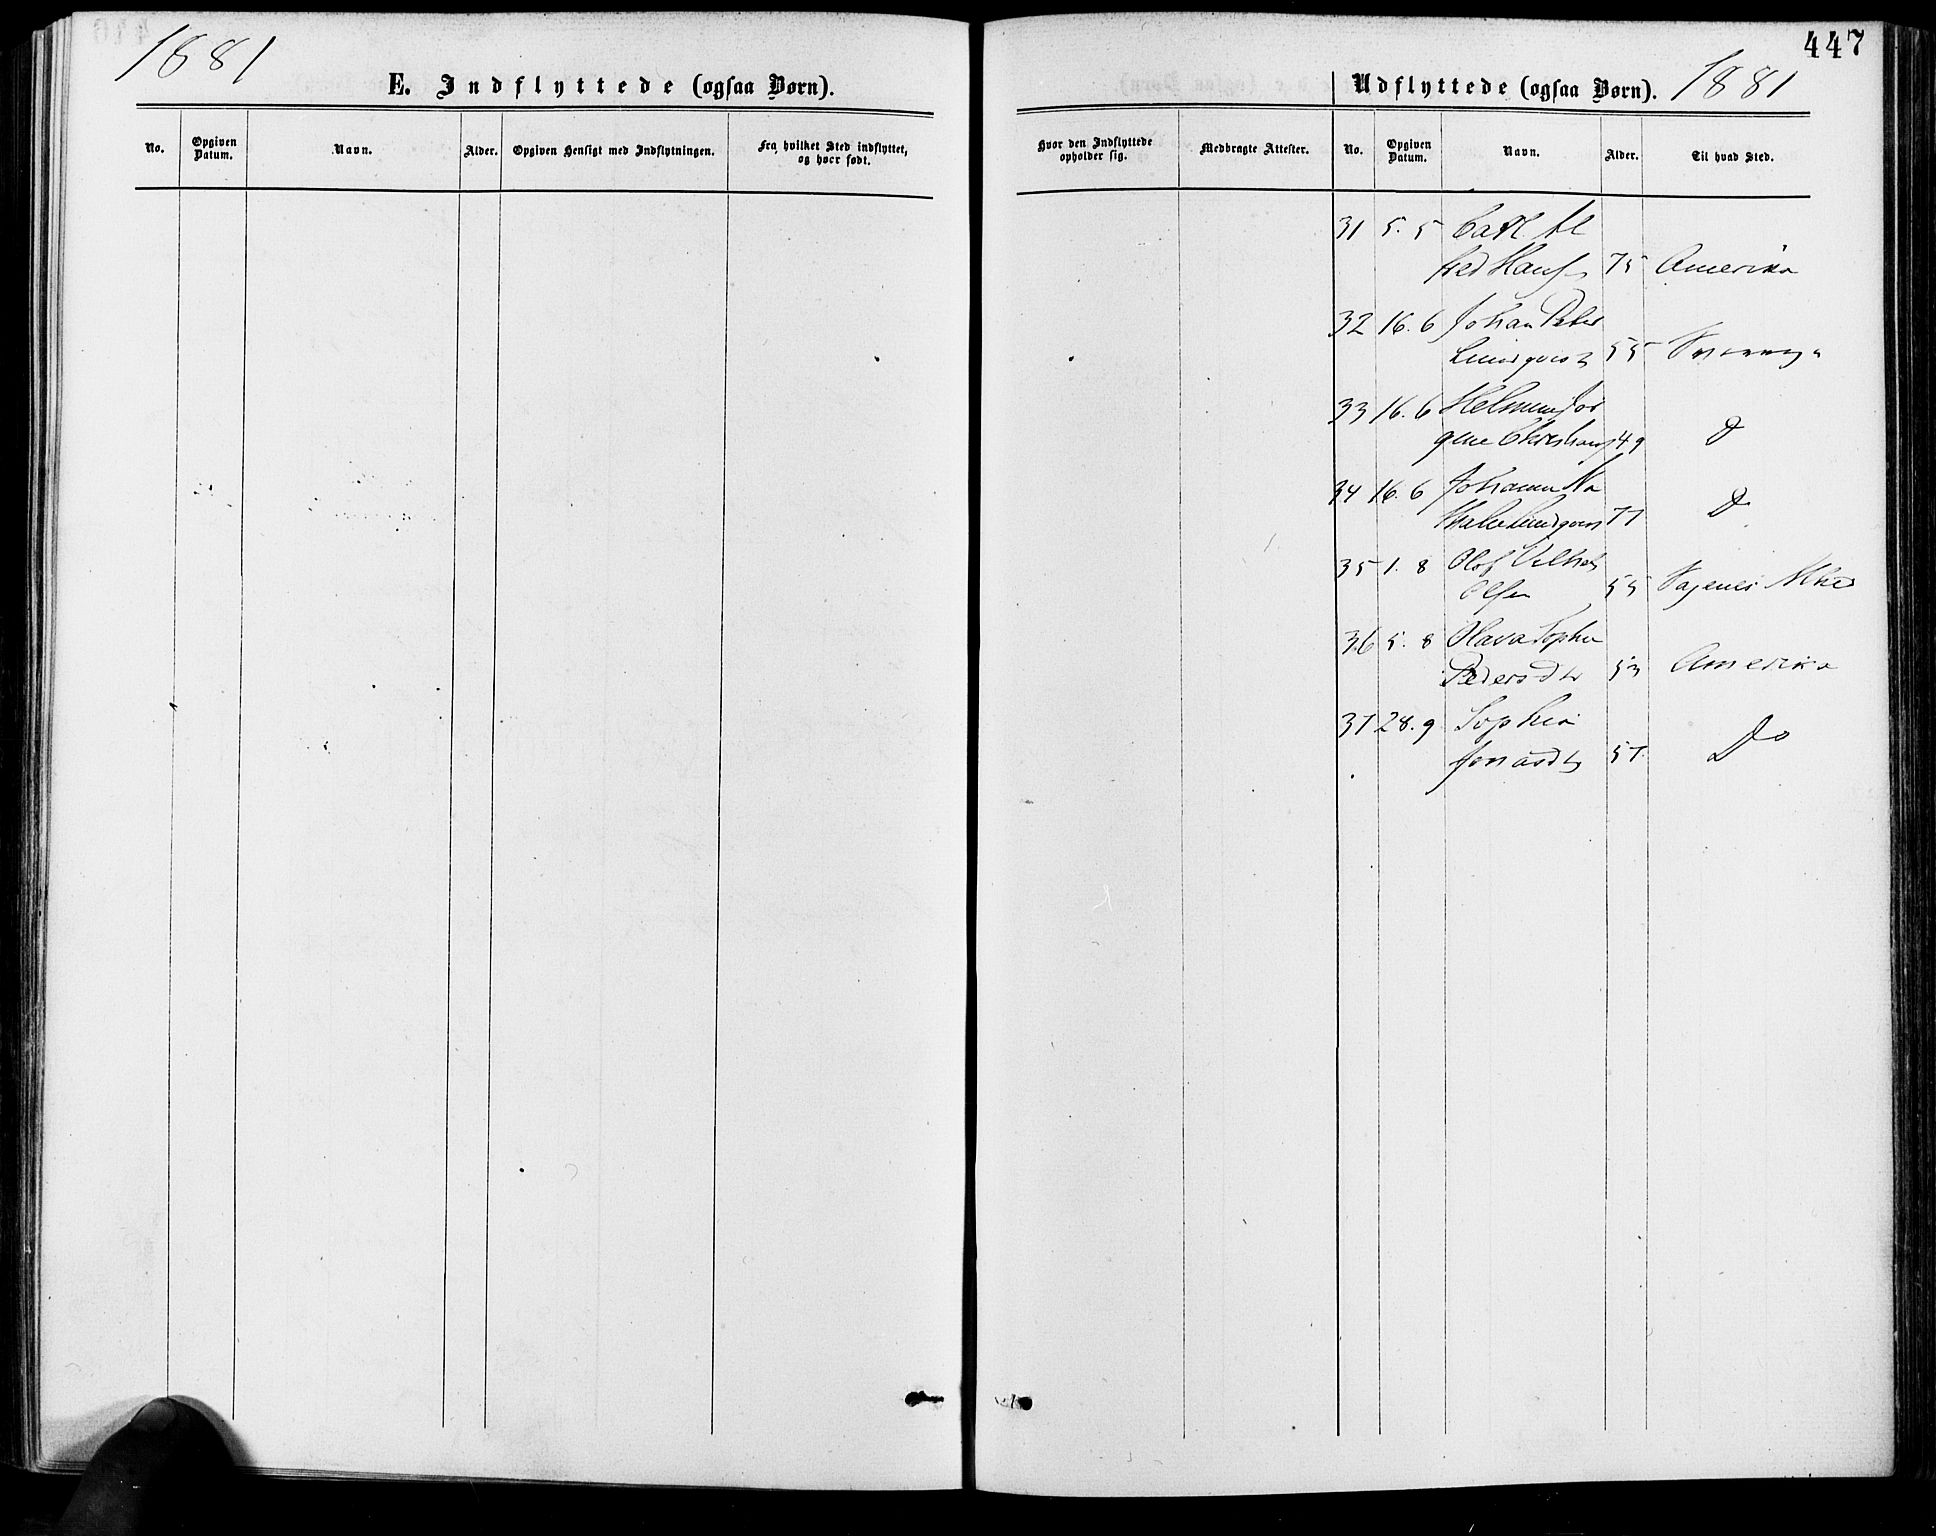 1881
E. Indflyttede (ogsaa Børn).
No.
Opgiven Datum.
Navn.
Alder.
Opgiven Hensigt med Indflytningen.
Fra hvilket Sted indflyttet,
og hvor født.
447
Udflyttede (ogsaa Børn). 1881
Hvor den Indflyttede
opholder sig.
Medbragte Attester.
No.
Opgiven Datum.
Navn.
Alder.
Til hvad Sted.
31 5. 5 Carl Al
fred Hans 75 Amerika
32 16. 6 Johan Peter
Lindqvist 55
33 16. 6
gine Christians 49 D
34 16. 6 Johanna Ma
Lindqvist 77 D
35 1. 8 Olof Vilhelm
Olsen 55
36 5. 8 Olava Sophie
Pedersdtr 53 Amerika
37 28. 9 Sophia
Jonasdtr 57 Do